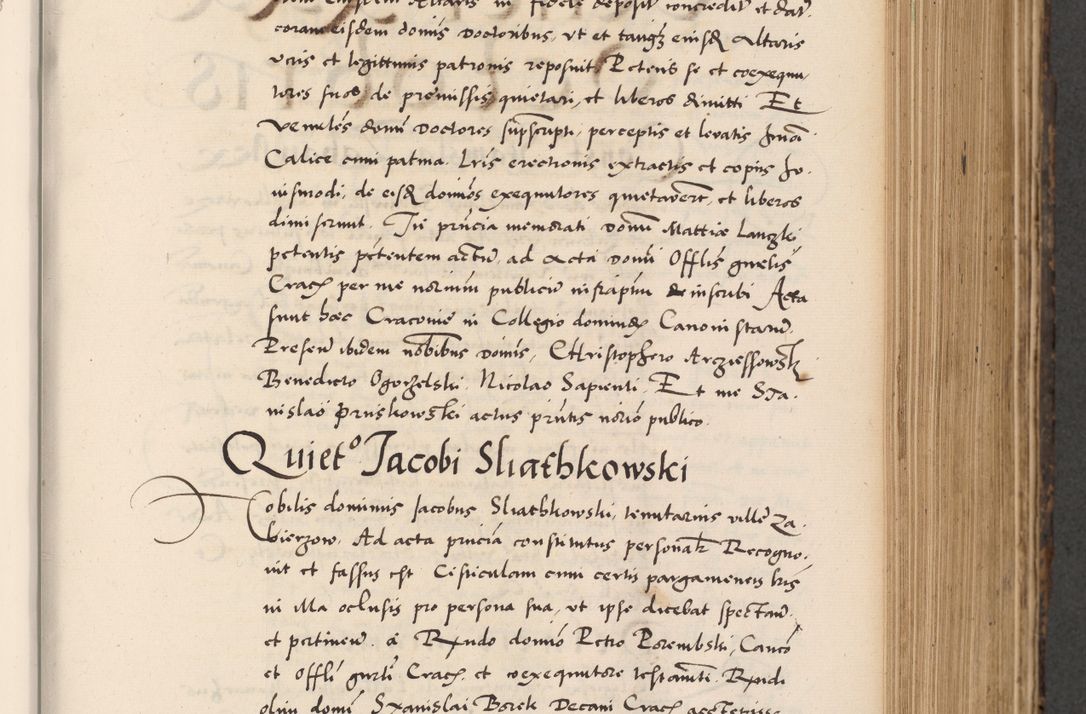 coram eisdem domis doctoribus, vt et tangz eiusd altaris
veris et legittimis patronis reposuit. Petens se et coexequu,
tores suos de premissis quietari, et liberos dimitti Et
venules domi doctores supscripti, perceptis et levatis
Calice cum patina. Lris erectionis extractis et copiis hu,
iusmodi, de eisd dominos exequutores quietaverut, et liberos
dimiserunt. In princia memorati domi Mattiae Lanczki
petentis petentem actu, ad acta domi Offlis gnelis
Crac per me notium publicu infraptu inscribi Acta
sunt haec Cracovie in Collegio dominor Canonistaru.
Presen ibidem nobilibus domis, Christophoro Arciessowsk
Benedicto Ogorzelski, Nicolao Sapienti, Et me Sta,
nislao Pruskowski actus pritis notio publico.
Quieto Jacobi Sliathkowski
Nobilis dominus Jacobus Sliathkowski, tenutarius ville Za,
bierzow. Ad acta princia constitutus personalr Recogno,
uit et fassus est Cisticulam cum certis pargameneis lris
in illa oclusis pro persona sua, vt ipse dicebat spectan
et pertinen. a Rndo domino Petro Porembski, Canco
et Offli gnrli Crac. et coexequutore testamti. Rndi
olim domi Stanislai Borek Decani Crac